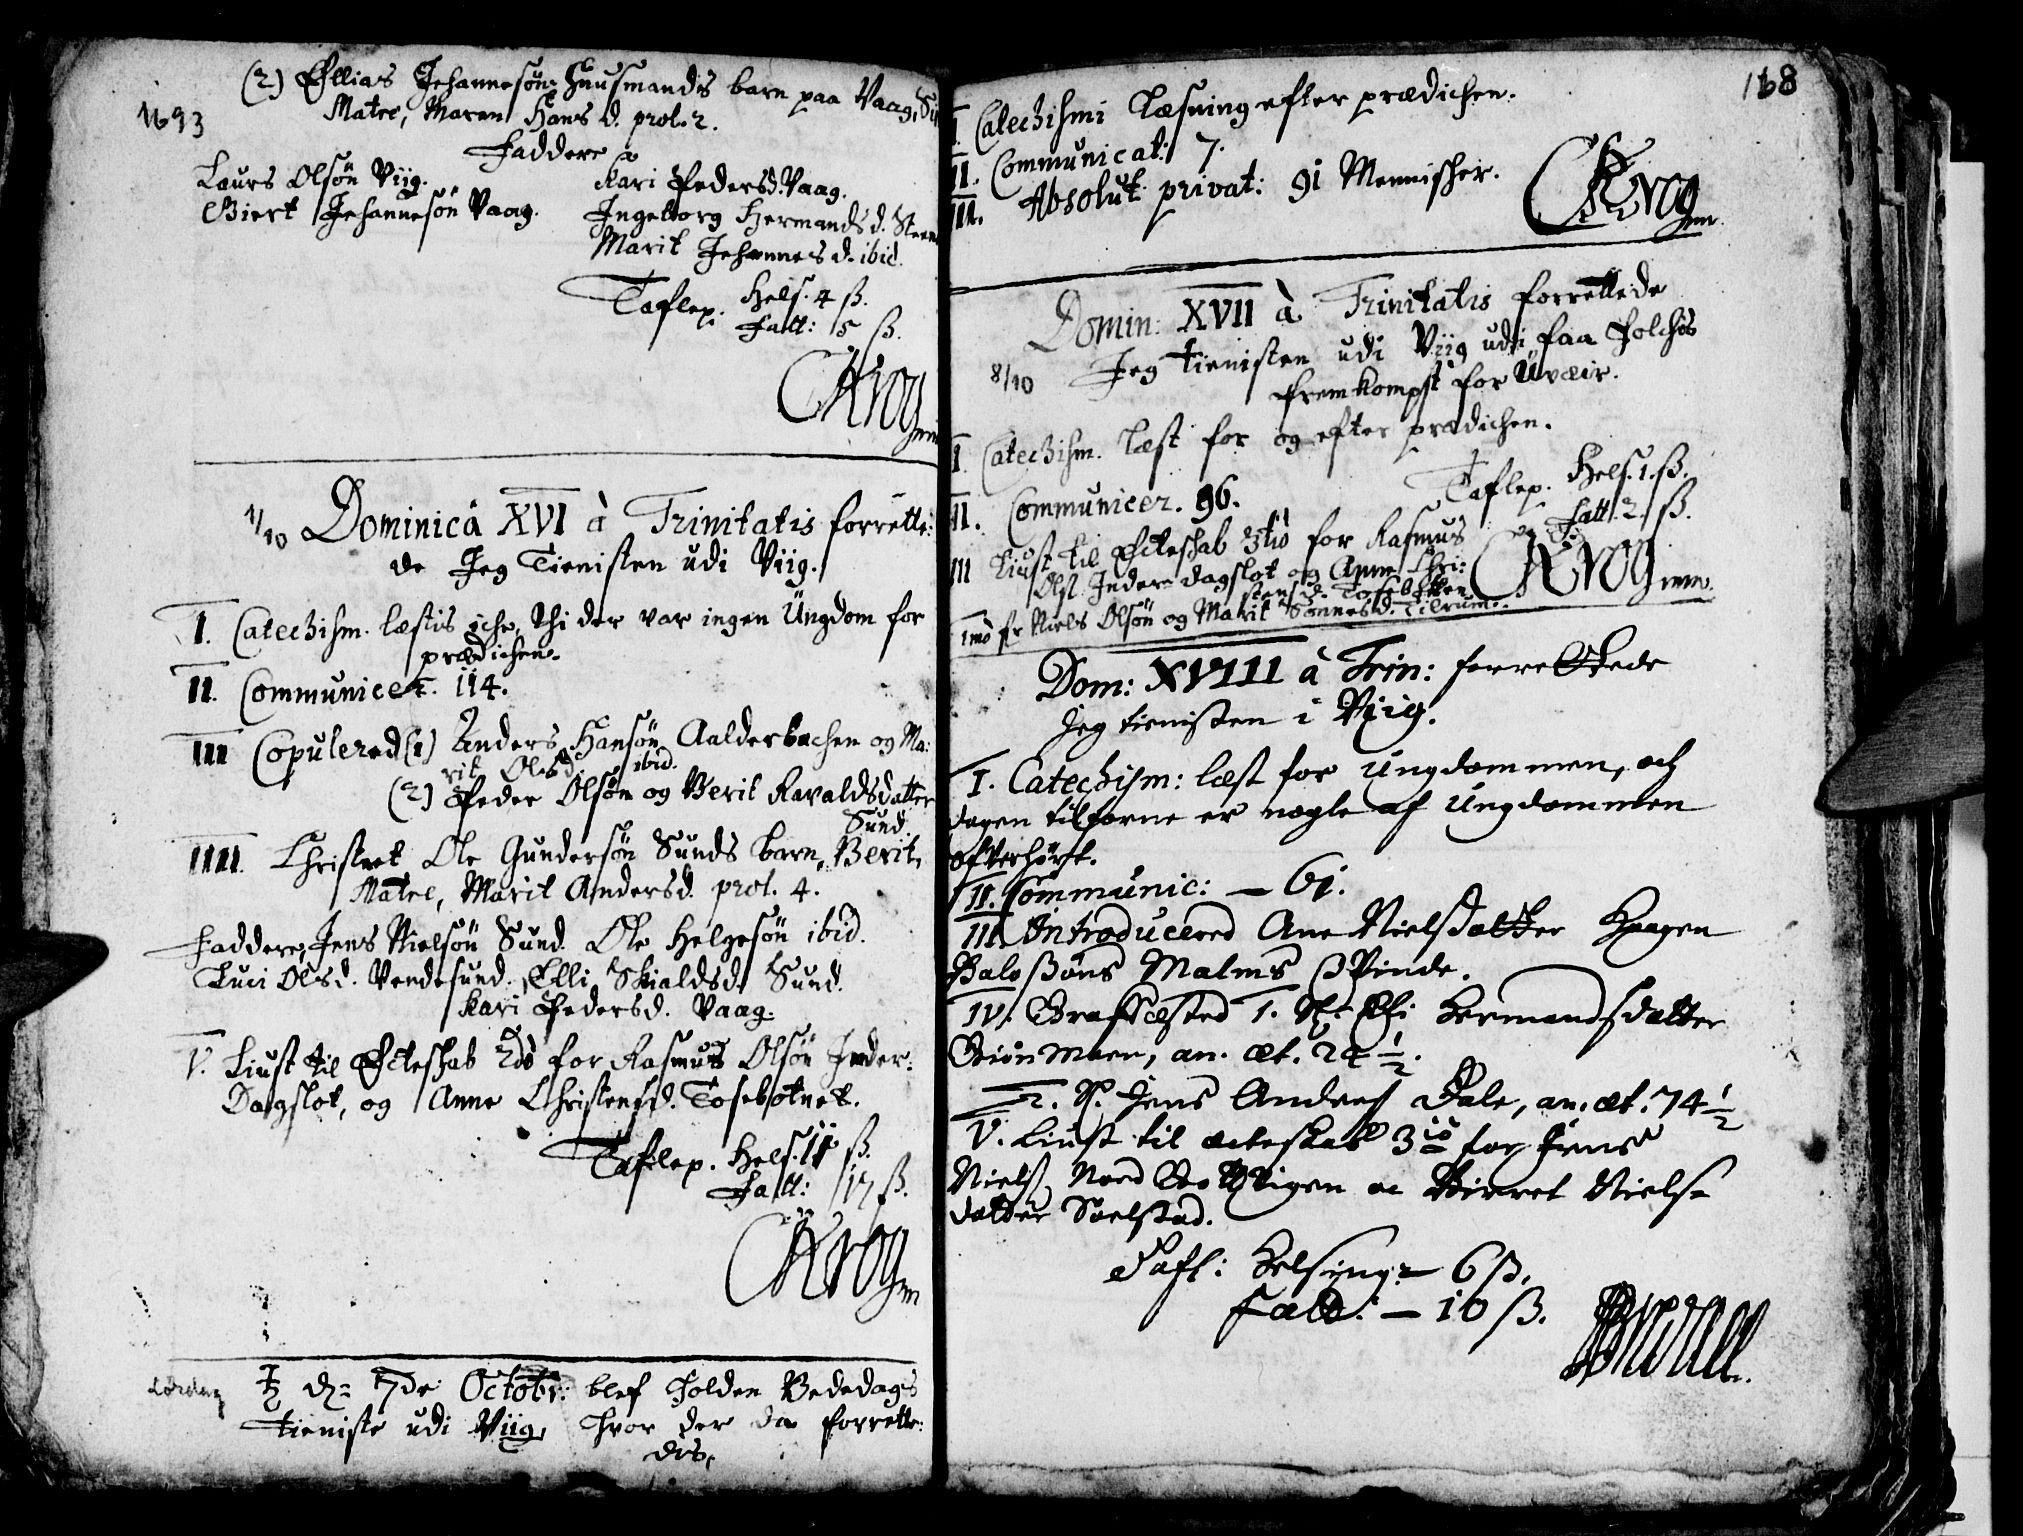 1693
(2) Ellias Johannesøn Huusmands barn paa Vaag,
Matre, Maren Hans d. prol. 2.
Faddere
Laurs Olsøn Viig.
Biert Johannesøn Vaag.
Kari Pedersd. Vaag.
Ingeborg Hermandsd.
Marit Johannesd. ibid.
Taflep. Hels. 4 ß.
Fatt: 5 ß.
CKrog mm
1/10 Dominicâ XVI à Trinitatis forrette:
de Jeg Tienisten udi Viig.
I. Catechism. læstis iche, thi der var ingen Ungdom for
prædichen.
II. Communicer. 114.
III Copulered (1) Anders Hansøn Aalderbachen og Ma:
rit Olsd. ibid.
(2) Peder Olsøn og Berit Ravaldsdatter
Sund.
IIII. Christnet Ole Gundersøn Sunds barn, Berit,
Matre, Marit Andersd. prol. 4.
Faddere, Jens Nielsøn Sund. Ole Helgesøn ibid.
Luci Olsd. Vendesund. Elli Skialdsd. Sund.
Kari Pedersd. Vaag.
V. Liust til Ecteskab 2do for Rasmus Olsøn Inder:
Dagslot, og Anne Christensd. Tosebotnet.
Taflep. Hels. 11 ß.
Fatt: 17 ß.
CKrog mm
Lørdag
♄ d: 7de Octobr: blef holden Bededags
tieniste udi Viig, hvor der da forrette:
dis,
168
I. Catechismi Læsning efter prædichen.
II. Communicat: 7.
III. Absolut. privat: 91 Mennisher.
CKrog mm.
Domin: XVII à Trinitatis forrettede
8/10 Jeg Tienisten udi Viig udi faa Folchis
fremkompst for Uvæir.
I. Catechism. læst for og efter prædichen.
II. Communicer. 96.
Taflep. Hels. 1. ß.
Fatt. 2. ß.
III Liust til Ecteskab 3tiò for Rasmus
Ols. Inder dagslot og Anne Chri:
stensd. Tosebotten
1mò fr Niels Olsøn og Marit Sonnesd. Tilrum.
CKrog mm.
Dom: XVIII à Trin: forrettede
Jeg tienisten i Viig.
I. Catechism: læst for Ungdommen, och
dagen tilforne er nogle af Ungdommen
ofverhørt.
II. Communic: — 61.
III. Introducered Ane Nielsdatter Haagen
Malms qvinde.
IV. Graffæsted 1. Sl. Elsi Hermandsdatter
an. æt. 24 1/2.
2. S. Jens Anders Dale, an. æt. 74 1/2
V. Liust til ecteskab 3iò for Jens
Niels Nord og Birret Niels
datter Soelstad.
Tafl: Helsing: — 6 ß.
Fatt: — 10 ß.